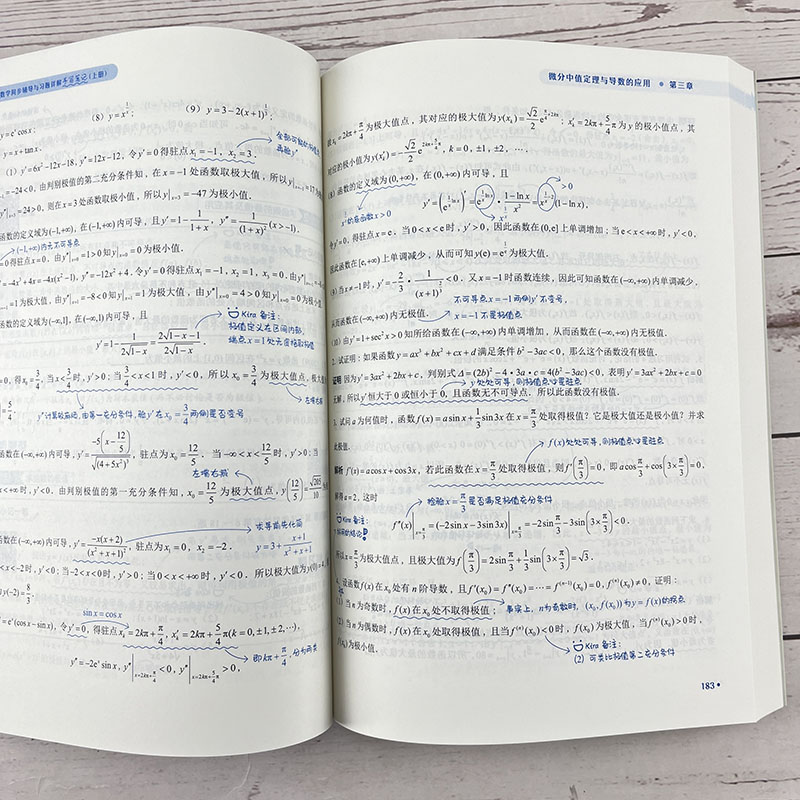 数学同步辅导与习题详解手写笔记(上册)
(8) y=x^{1/x};
(9) y=3-2(x+1)^{1/3};
y=e^x cos x;
y=x+tan x.
(1) y'=6x²-12x-18, y''=12x-12, 令y'=0得驻点x₁=-1, x₂=3.
=-24<0, 由判别极值的第二充分条件知, 在x=-1处函数取极大值, 所以y|_{x=-1}=17为
=24>0, 则在x=3处函数取极小值, 所以y|_{x=3}=-47为极小值.
函数的定义域为(-1,+∞), 在(-1,+∞)内可导, 且y'=1-1/(1+x), y''=1/(1+x)² (x>-1).
(-1,+∞)内无不可导点
=0得驻点x=0. 由y''|_{x=0}=1>0知y|_{x=0}=0为极小值.
=-4x³+4x=-4x(x²-1), y''=-12x²+4. 令y'=0得驻点x₁=-1, x₂=1, x₃=0. 由y''
=1为极大值, 由y''|_{x=1}=-8<0知y|_{x=1}=1为极大值, 由y''|_{x=0}=4>0知y|_{x=0}=0为极小
函数的定义域为(-∞,1], 在(-∞,1)内可导, 且
Kira 备注:
极值定义在区间内部,
端点x=1处无需验极值
y'=1-1/(2√(1-x))=(2√(1-x)-1)/(2√(1-x)),
=0, 得x₀=3/4. 当x<3/4时, y'>0; 当3/4<x<1时, y'<0, 所以x₀=3/4为极大值点, 极大
左增右减
y''计算较麻烦, 由第一充分条件, 验y'在x₀=3/4两侧是否变号
函数在(-∞,+∞)内可导, y'=-5(x-12/5)/√((4+5x²)³), 驻点为x=12/5. 当-∞<x<12/5时, y'>0; 当
左增右减
x<+∞时, y'<0. 由判别极值的第一充分条件知, x₀=12/5为极大值点, y(12/5)=√205/10为
求导前先化简
函数在(-∞,+∞)内可导, y'=-x(x+2)/(x²+x+1)², 驻点为x₁=0, x₂=-2.
y=3+(x+1)/(x²+x+1)
x<-2时, y'<0; 当-2<x<0时, y'>0; 当0<x<+∞时, y'<0. 所以极大值为y(0)=4,
y(-2)=8/3.
sin x=cos x
=e^x(cos x-sin x), 令y'=0, 得驻点x₁=2kπ+π/4, x₁'=2kπ+5/4π(k=0,±1,±2,⋯),
即kπ+π/4, 分为两类
y''=-2e^x sin x, y''|_{x=2kπ+π/4}<0, y''|_{x=2kπ+5/4π}>0,
微分中值定理与导数的应用 • 第三章
x₁=2kπ+π/4为极大值点, 其对应的极大值为y(x₁)=√2/2 e^{2kπ+π/4}; x₁'=2kπ+5/4π为y的极小值点, 其
对应的极小值为y(x₁')=-√2/2 e^{2kπ+5/4π}, k=0,±1,±2,⋯.
(8) 函数的定义域为(0,+∞), 在(0,+∞)内可导, 且
y'=(e^{1/x ln x})'=e^{1/x ln x}·(1-ln x)/x²=x^{1/x-2}(1-ln x),
令y'=0, 得驻点x=e. 当0<x<e时, y'>0, 因此函数在(0,e]上单调增加; 当e<x<+∞时, y'<0,
因此函数在[e,+∞)上单调减少, 从而可知y(e)=e^{1/e}为极大值.
(9) 当x≠-1时, y'=-2/3·1/(x+1)^{2/3}<0. 又x=-1时函数连续, 因此可知函数在(-∞,+∞)内单调减少.
不可导点x=-1两侧y'不变号,
x=-1不是极值点
从而函数在(-∞,+∞)内无极值.
(10) 由y'=1+sec²x>0知所给函数在(-∞,+∞)内单调增加, 从而函数在(-∞,+∞)内无极值.
2. 试证明: 如果函数y=ax³+bx²+cx+d满足条件b²-3ac<0, 那么这个函数没有极值.
y处处可导, 则极值点必是驻点
证明 因为y'=3ax²+2bx+c, 判别式Δ=(2b)²-4·3a·c=4(b²-3ac)<0, 表明y'=3ax²+2bx+c=0
无解, 所以y'恒大于0或恒小于0, 且函数无不可导点. 所以此函数没有极值.
3. 试问a为何值时, 函数f(x)=asin x+1/3 sin 3x在x=π/3处取得极值? 它是极大值还是极小值? 并求
此极值.
f(x)处处可导, 则极值点必是驻点
解析 f'(x)=acos x+cos 3x, 若此函数在x=π/3处取得极值, 则f'(π/3)=0, 即acos π/3+cos(3×π/3)=0,
解得a=2, 这时
检验x=π/3是否满足极值充分条件
Kira 备注:
f''(x)|_{x=π/3}=(-2sin x-3sin 3x)|_{x=π/3}=-2sin π/3-3sin(3×π/3)<0.
所以x=π/3为极大值点, 且极大值为f(π/3)=2sin π/3+1/3 sin(3×π/3)=√3.
4. 设函数f(x)在x₀处有n阶导数, 且f'(x₀)=f''(x₀)=⋯=f^{(n-1)}(x₀)=0, f^{(n)}(x₀)≠0, 证明:
(1) 当n为奇数时, f(x)在x₀处不取得极值;
事实上, n为奇数时, (x₀,f(x₀))为y=f(x)的拐点
(2) 当n为偶数时, f(x)在x₀处取得极值, 且当f^{(n)}(x₀)<0时, f(x₀)为极大值, 当f^{(n)}(x₀)>0时,
f(x₀)为极小值.
Kira 备注:
(2) 可类比极值第二充分条件
183